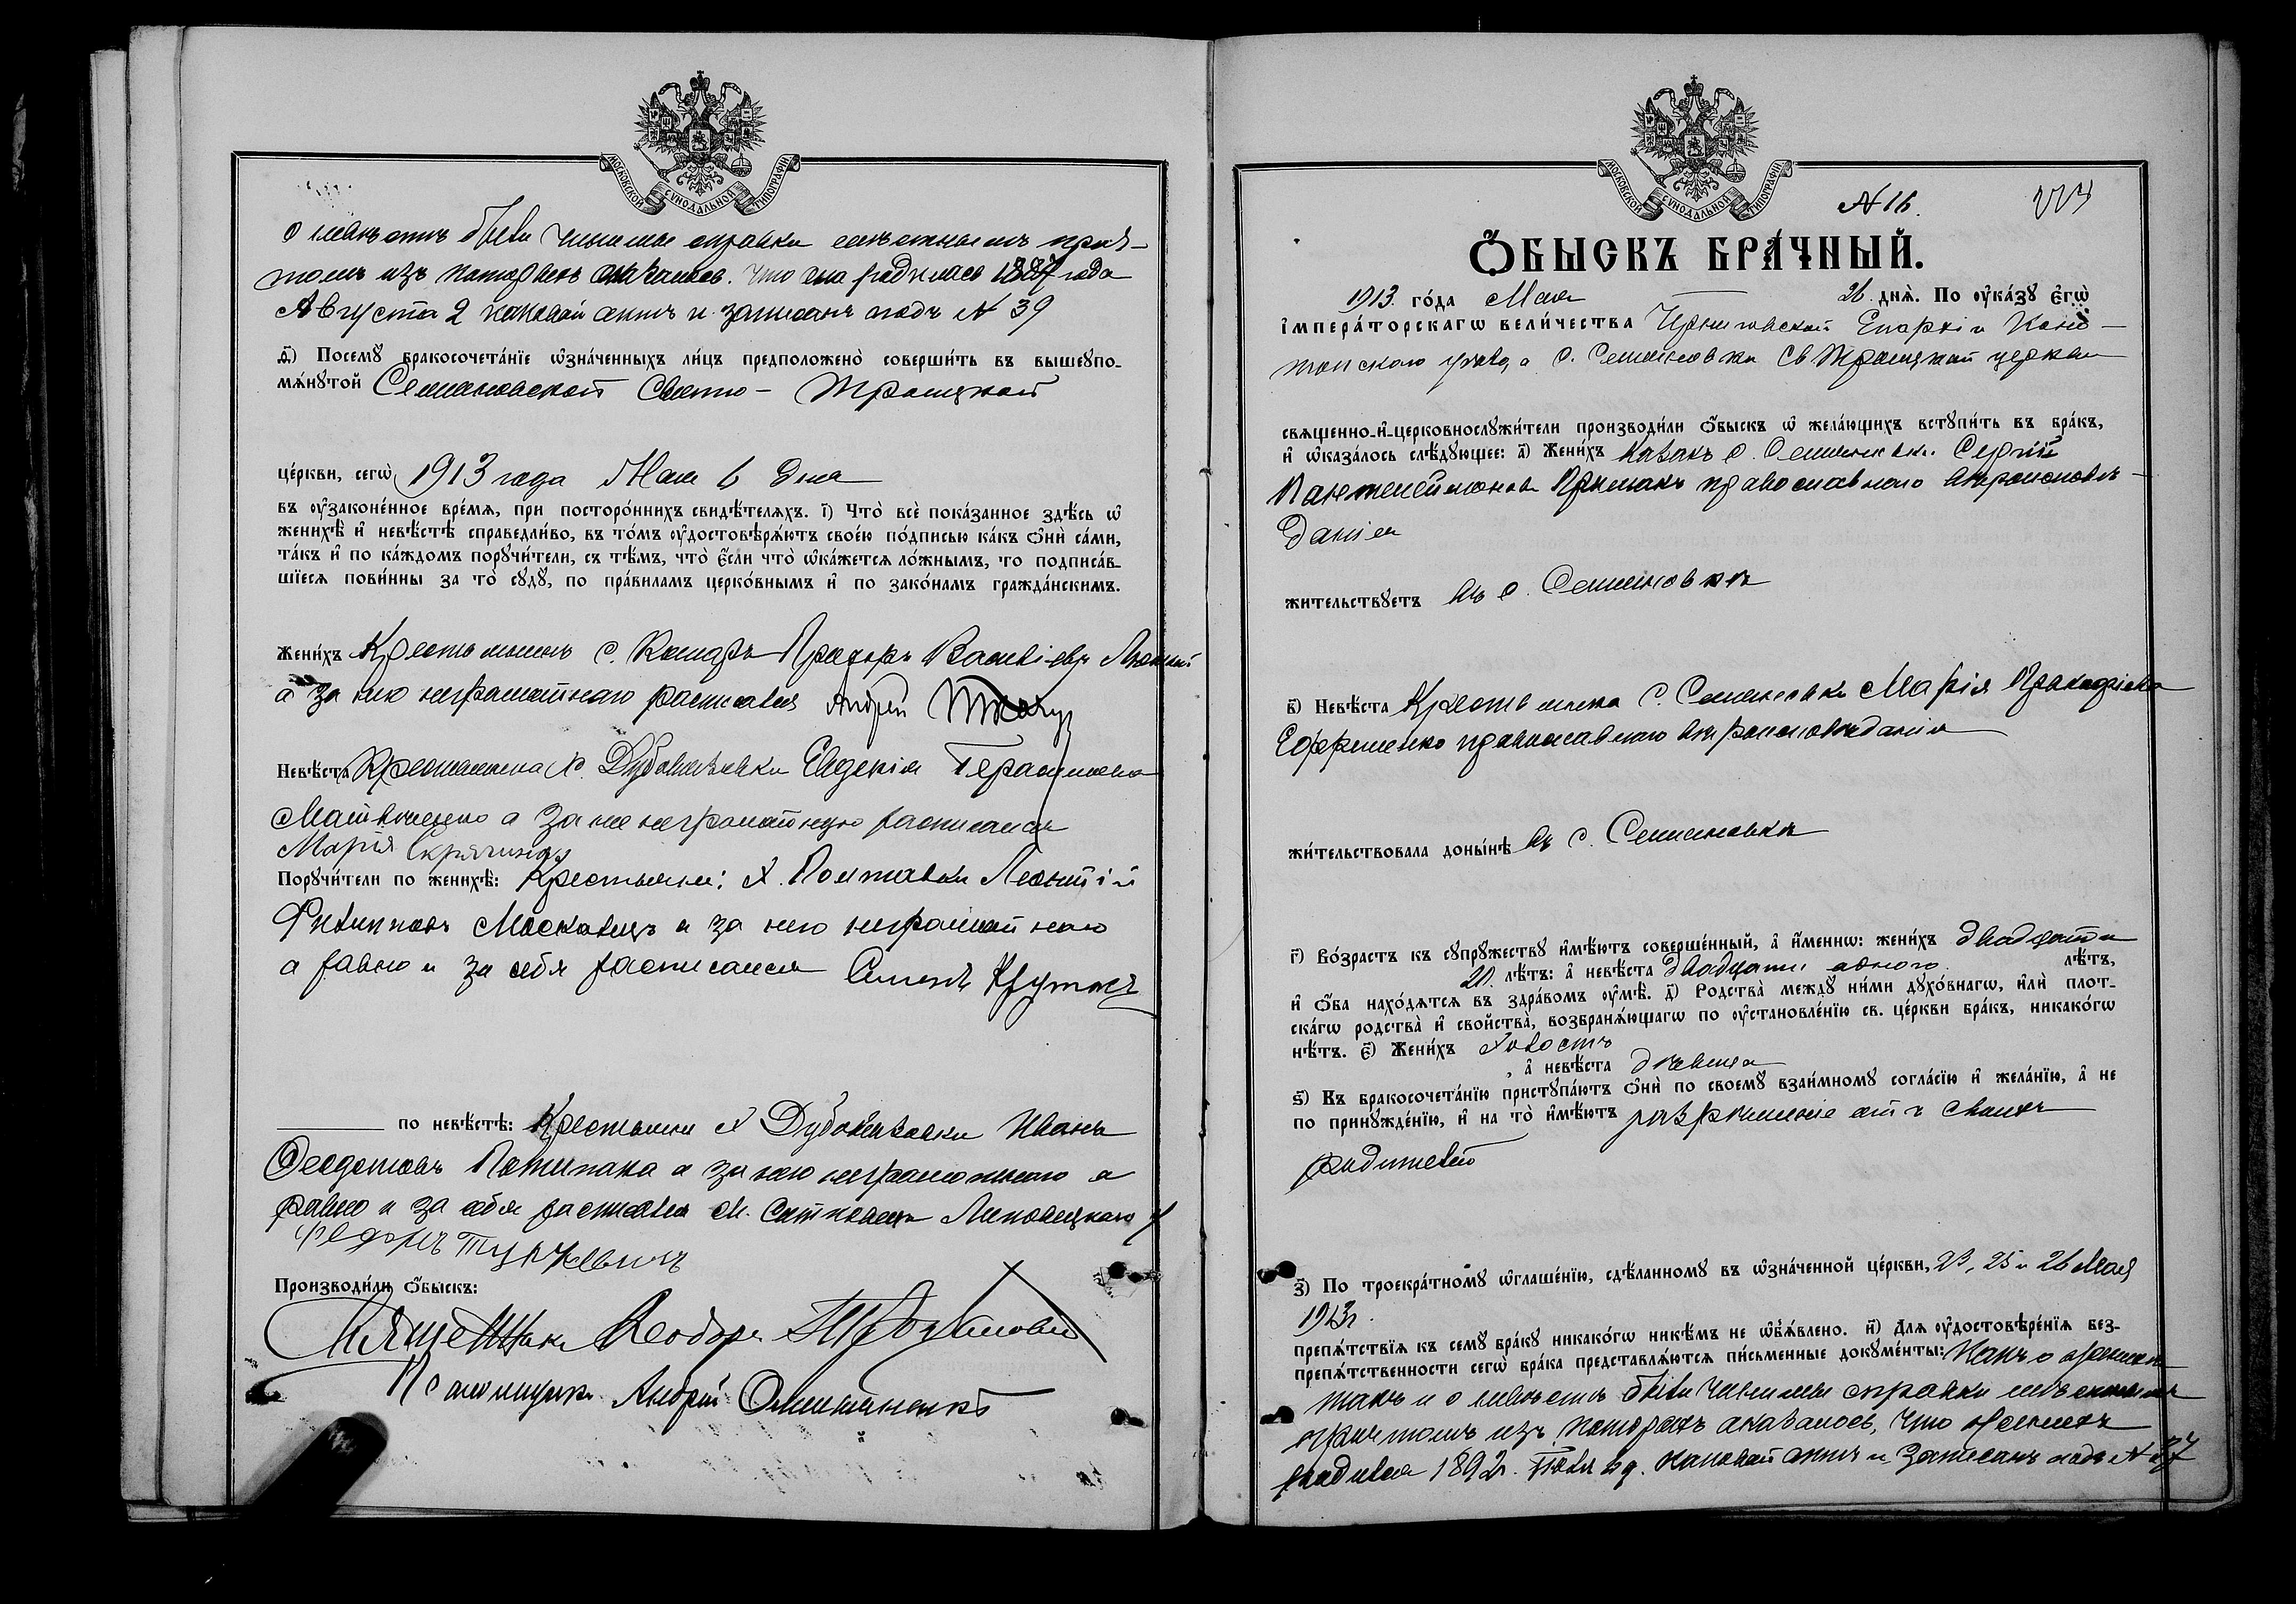 МОСКОВСКОЙ СУНОДАЛЬНОЙ ТИПОГРАФІИ
о невѣстѣ были чинимы справки мѣстнымъ прич-
томъ изъ которыхъ оказалось, что она родилась 1887 года
Августа 2 каковой актъ и записанъ подъ № 39
д҃) Посемꙋ бракосочета́нїе ѡ҆зна́ченныхъ ли́цъ предположено̀ соверши́ть въ вышеꙋпо-
мѧ́нꙋтой Семяновской Свято - Троицкой
це́ркви, сегѡ̀ 1913 года Мая 6 дня
въ ᲂу҆зако́не́нное вре́мѧ, при посторо́ннихъ свидѣ́телѧхъ. і҃) Что̀ всѐ пока́занное здѣ́сь ѡ҆
женихѣ̀ и҆ невѣ́стѣ справедли́во, въ то́мъ ᲂу҆достовѣрѧ́ютъ свое́ю по́дписью ка́къ ѻ҆нѝ са́ми,
та́къ и҆ по ка́ждомъ порꙋчи́тели, съ тѣ́мъ, что̀ є҆́сли что̀ ѡ҆ка́жетсѧ ло́жнымъ, то подписа́в-
шїесѧ пови́нны за то̀ сꙋдꙋ̀, по пра́виламъ церко́внымъ и҆ по зако́намъ гражда́нскимъ.
Жени́хъ Крестьянинъ с. Прохоръ Василіевъ
а за него неграмотнаго росписался Андрей Ткачу
Невѣ́ста Крестьянка х. Дубовязовки Евдокія Герасимова
Матвѣенко а за нее неграмотную расписался
Марія
Порꙋчи́тели по женихѣ̀: Крестьяне: х. Полтавки Леонтій
Филипповъ Москалецъ а за него неграмотнаго
а равно и за себя расписался Семенъ Крутько
по невѣ́стѣ: Крестьяни х Дубовязовки Иванъ
Феодотовъ а за него неграмотнаго а
равно и за себя расписался
Федоръ
Производи́ли ѻ҆́быскъ:
Священникъ Ѳеодоръ
Псаломщикъ Андрей
МОСКОВСКОЙ СУНОДАЛЬНОЙ ТИПОГРАФІИ
№ 16.
Ѻ҆́БЫСКЪ БРА́ЧНЫЙ.
1913. го́да Мая 26. днѧ̀. По ᲂу҆ка́зꙋ є҆гѡ̀
і҆мпера́торскагѡ вели́чества Черниговской Епархіи Коно-
топскаго уѣзда с. Семяновки Св Троицкой церкви
свѧщенно-и҆-церковнослꙋжи́тели производи́ли ѻ҆́быскъ ѡ҆ жела́ющихъ встꙋпи́ть въ бра́къ,
и҆ ѡ҆каза́лось слѣ́дꙋющее: а҃) Жени́хъ Казакъ с. Семяновки Сергій
Пантелеймоновъ Примакъ православнаго вѣроисповѣ-
данія
жительствꙋетъ въ с. Семяновкѣ
в҃) Невѣ́ста Крестьянка с. Семяновки Марія
Ефременко православнаго вѣроисповѣданія
жи́тельствовала доны́нѣ въ с. Семяновкѣ
г҃) Во́зрастъ къ сꙋпрꙋжествꙋ и҆мѣ́ютъ соверше́нный, а҆ и҆́меннѡ: жени́хъ двадцати
20. лѣ́тъ: а҆ невѣ́ста двадцати одного лѣ́тъ,
и҆ ѻ҆́ба нахо́дѧтсѧ въ здра́вомъ ᲂу҆мѣ̀. д҃) Родства̀ междꙋ̀ ни́ми дꙋхо́внагѡ, и҆лѝ плот-
ска́гѡ родства̀ и҆ сво́йства̀, возбранѧ́ющагѡ по ᲂу҆становле́нїю св. це́ркви бра́къ, никако́гѡ
нѣ́тъ. є҃) Жени́хъ холостъ
, а҆ невѣ́ста дѣвица
ѕ҃) Къ бракосочета́нїю пристꙋпа́ютъ ѻ҆нѝ по своемꙋ̀ взаи́мномꙋ согла́сїю и҆ жела́нїю, а҆ не
по принꙋжде́нїю, и҆ на то̀ и҆мѣ́ютъ разрѣшеніе отъ своихъ
родителей
з҃) По троекра́тномꙋ ѡ҆глаше́нїю, сдѣ́ланномꙋ въ ѡ҆зна́ченной це́ркви, 23, 25 и 26 Мая
1913г.
препѧ́тствїѧ къ семꙋ̀ бра́кꙋ никако́гѡ никѣ́мъ не ѡ҆б̾ѧ́влено. и҃) Длѧ ᲂу҆достовѣре́нїѧ без-
препѧ́тственности сегѡ̀ бра́ка представлѧ́ютсѧ пи́сьменные докꙋме́нты: Какъ о женихѣ
такъ и о невѣстѣ были чинимы справки мѣстнымъ
причтомъ изъ которыхъ оказалось, что женихъ
родился 1892г. каковой актъ и записанъ подъ №